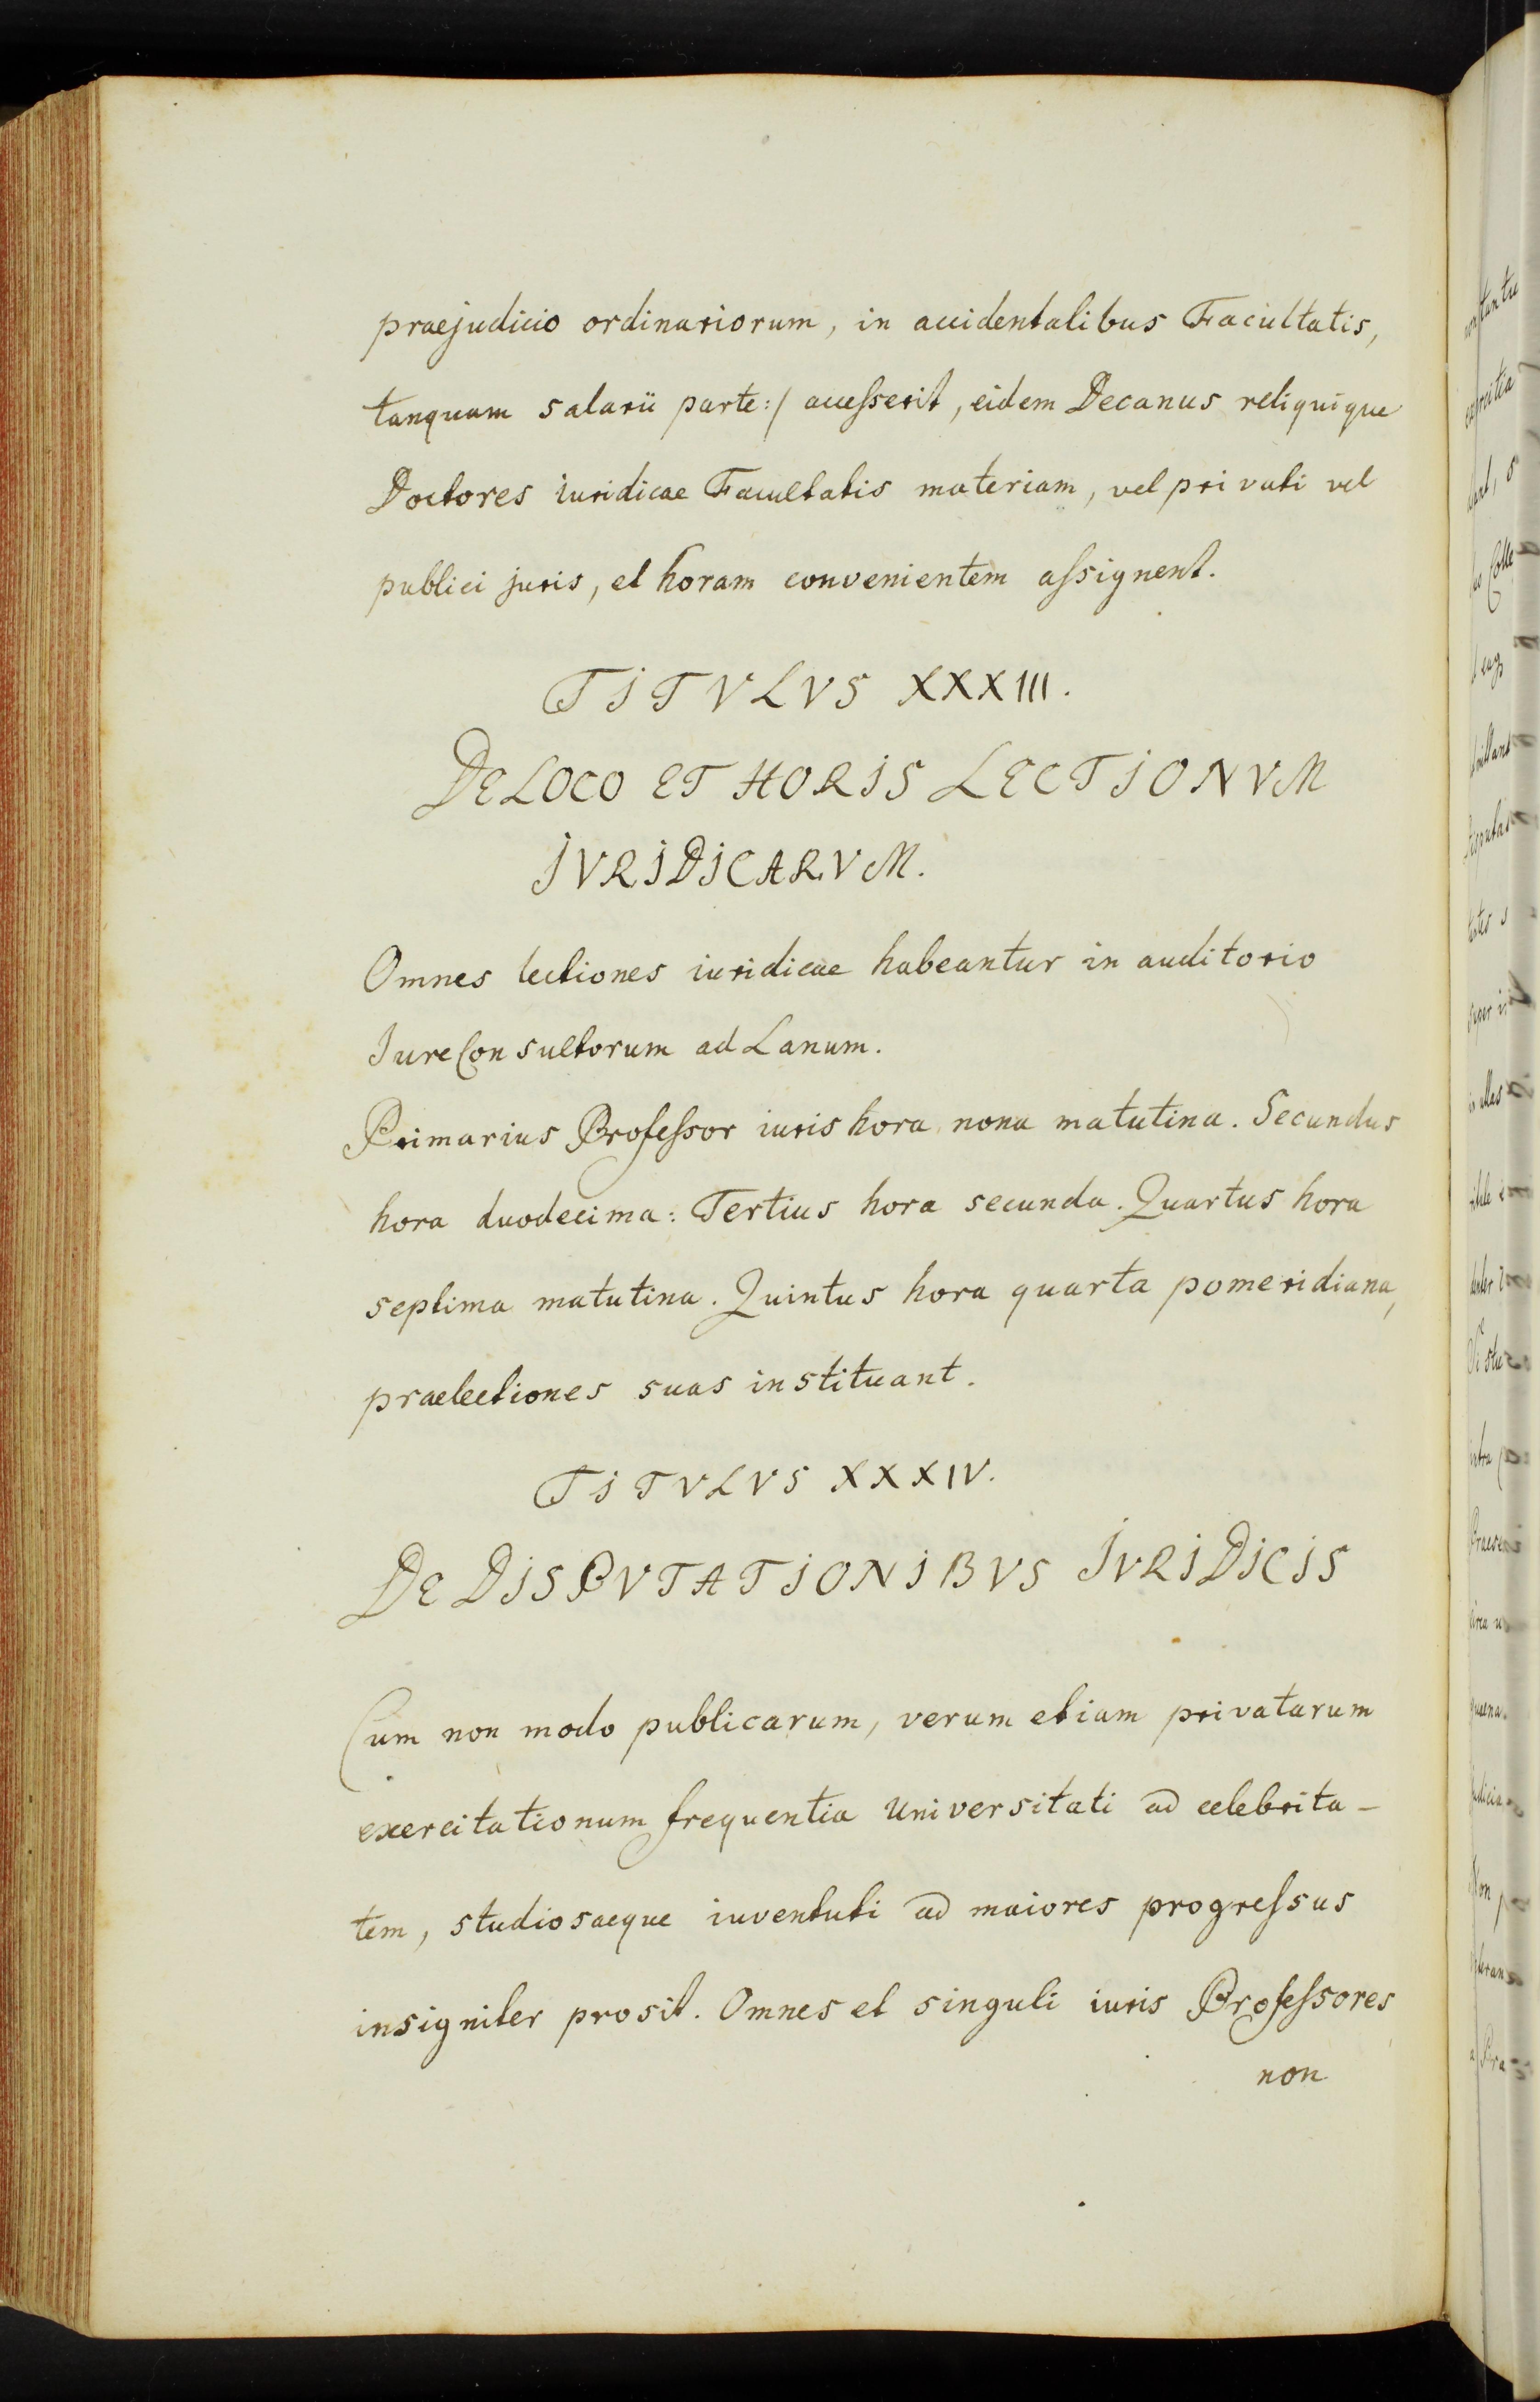 praejudicio ordinariorum, in accidentalibus Facultatis,
tanquam salarii parte:/ accesserit, eidem Decanus reliquique
Doctores iuridicae Facultatis materiam, vel privati vel
publici juris, et horam convenientem assignent.
TITVLVS XXXIII.
DE LOCO ET HORIS LECTIONVM
IVRIDICARVM.
Omnes lectiones iuridicae habeantur in auditorio
JureConsultorum ad Lanum.
Primarius Professor iuris hora nona matutina. Secundus
hora duodecima: Tertius hora secunda. Quartus hora
septima matutina. Quintus hora quarta pomeridiana,
praelectiones suas instituant.
TITVLVS XXXIV.
DE DISPVTATIONIBVS IVRIDICIS
Cum non modo publicarum, verum etiam privatarum
exercitationum frequentia Universitati ad celebrita-
tem, studiosaeque iuventuti ad maiores progressus
insigniter prosit. Omnes et singuli iuris Professores
non